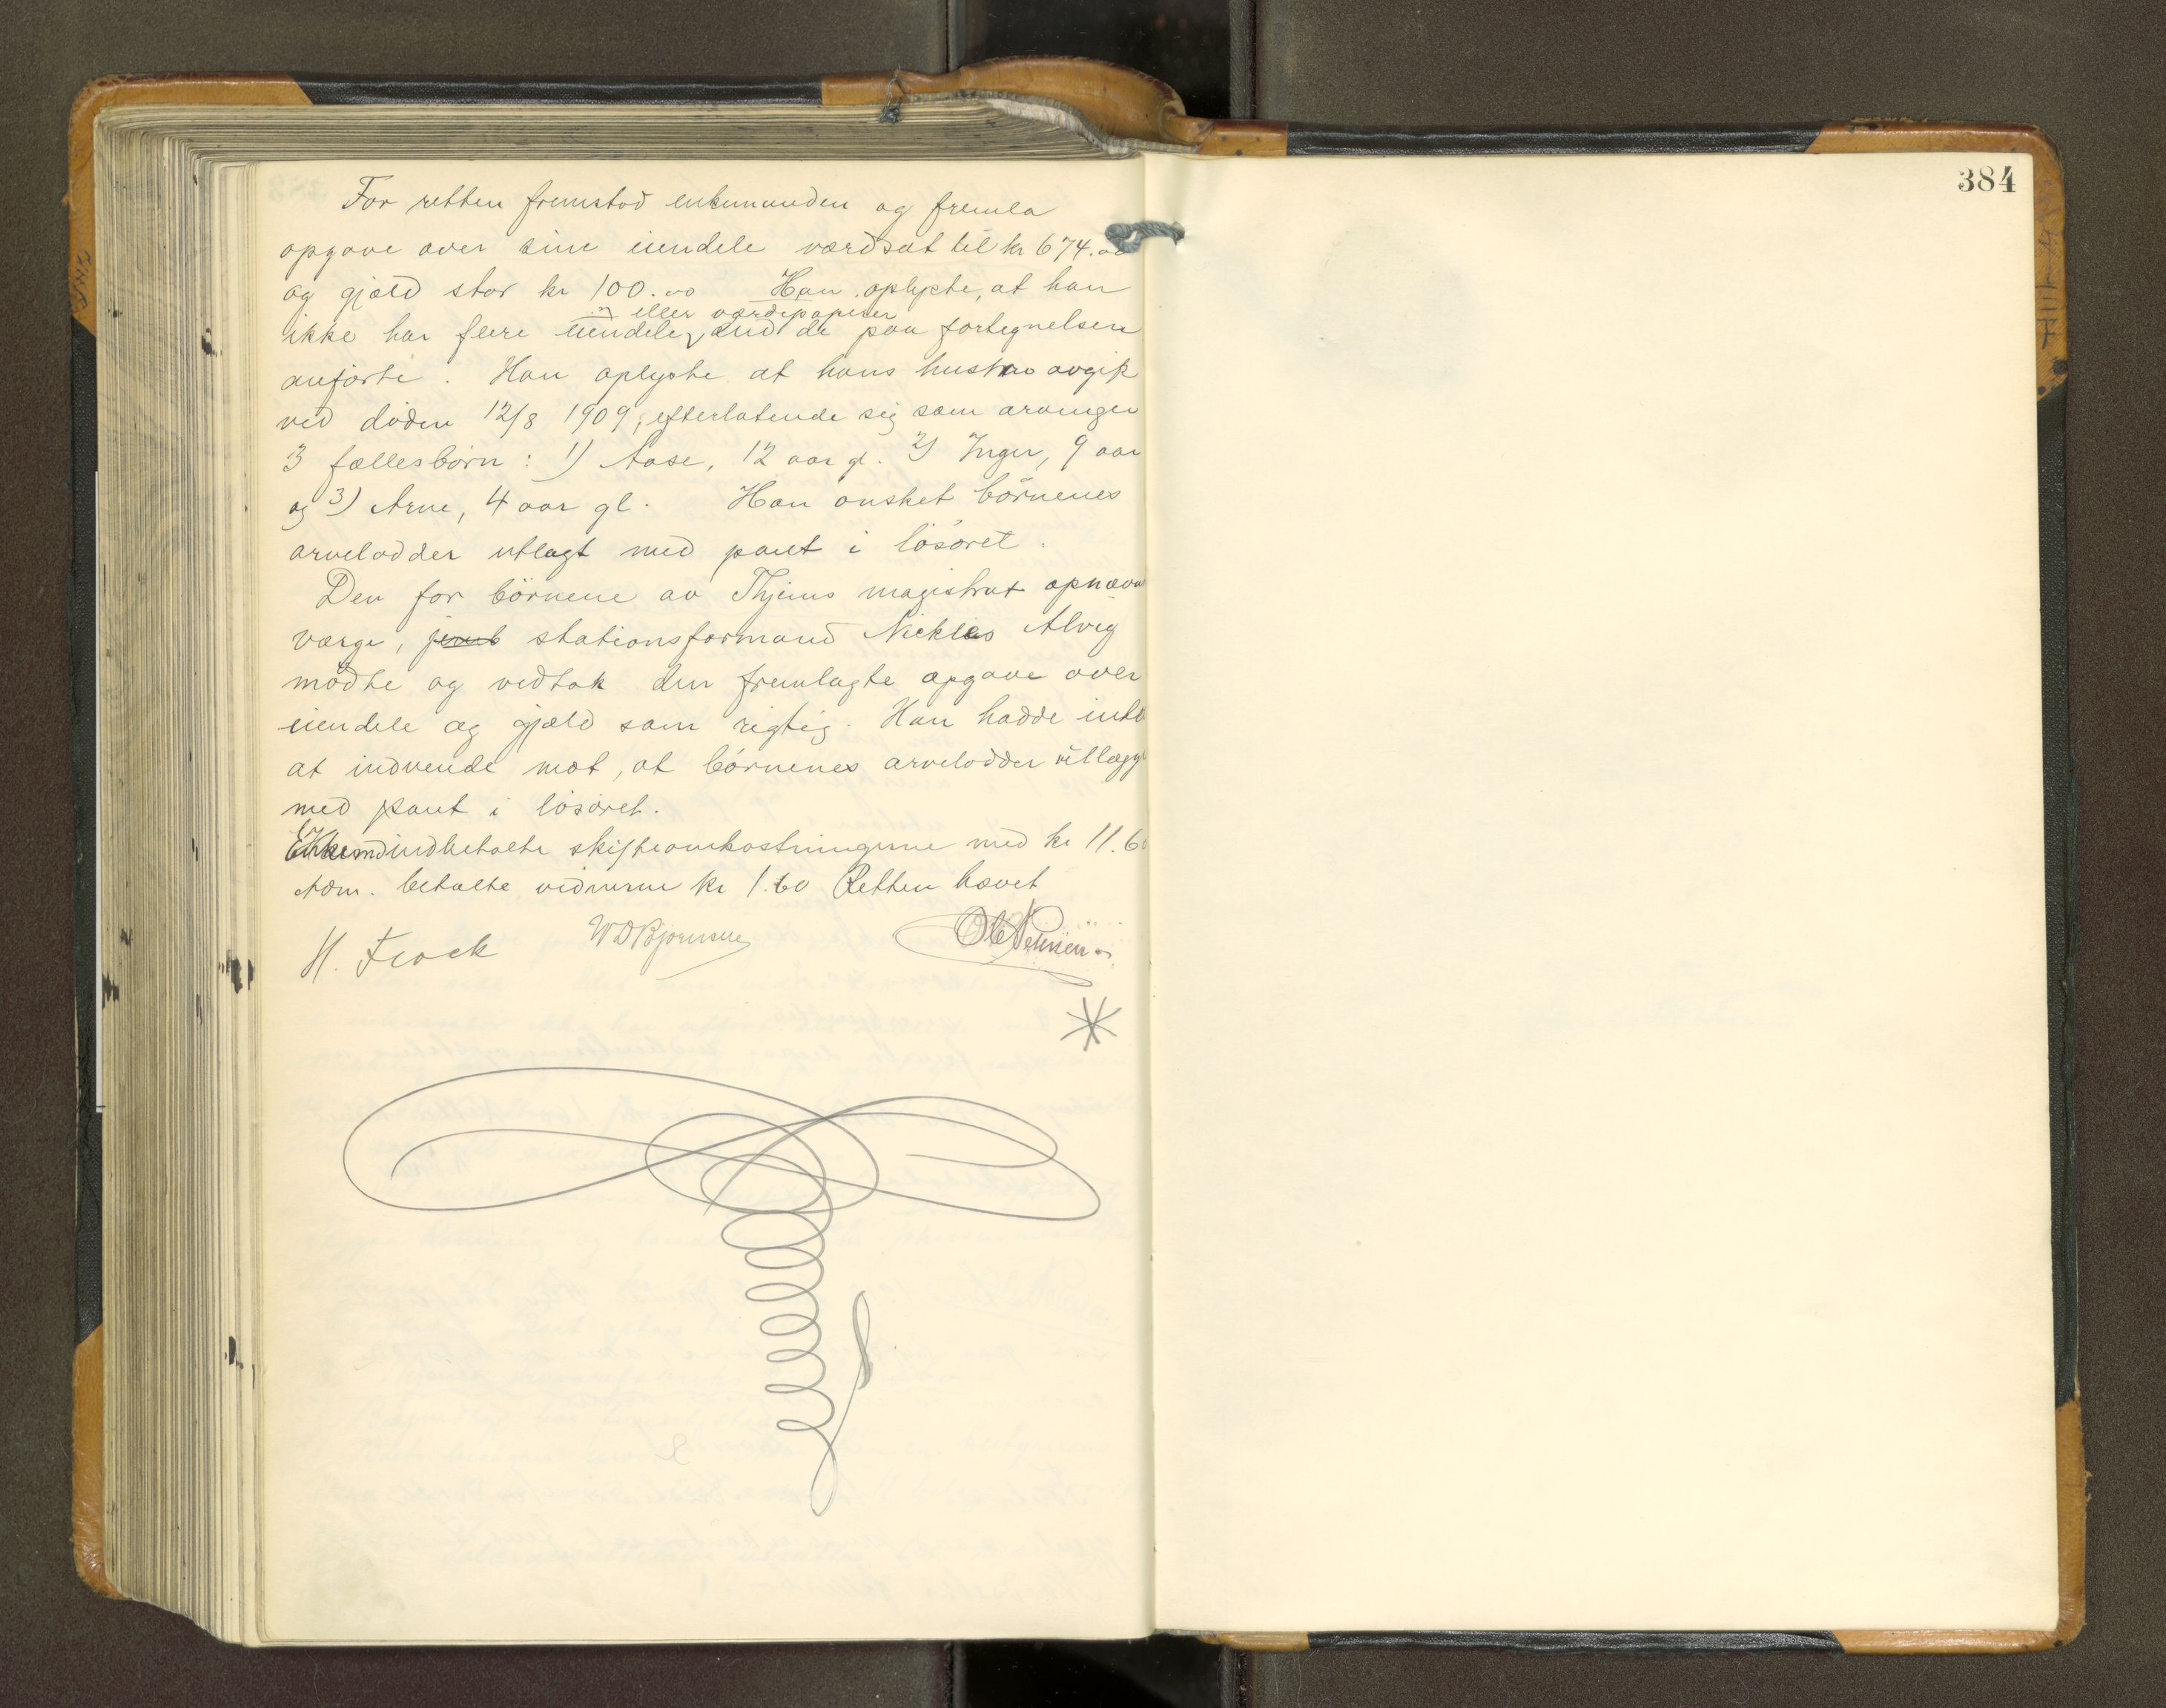 384
For retten fremstod enkemanden og fremla
opgave over sine eiendele værdsat til kr 674.00
og gjæld stor kr 100.00 Han oplyste, at han
eller værdipapirer
ikke har flere eiendele end de paa fortegnelsen
anførte. Han oplyste at hans hustru avgik
ved døden 12/8 1909, efterlatende sig som arvinger
3 fællesbörn: 1) Aase, 12 aar gl. 2) Inger, 9 aar
og 3) Arne, 4 aar gl. Han ønsket börnenes
arvelodder utlagt med pant i lösöret.
Den for börnene av Thjems magistrat opnævnt
værge, stationsformand Nicklas Alvig
mödte og vedtok den fremlagte opgave over
eiendele og gjæld som rigtig. Han hadde intet
at indvende mot, at börnenes arvelodder utlægges
med pant i lösöret.
Enkem indbetalte skifteomkostningerne med kr 11.60
Adm. betalte vidnerne kr 1.60 Retten hævet
H. Frock W D Bjørnsen Ole